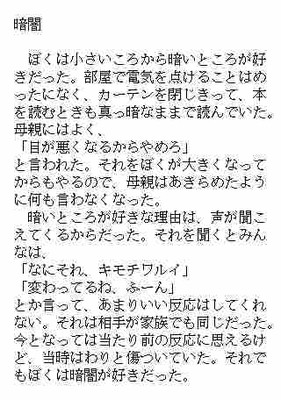 暗闇
　ぼくは小さいころから暗いところが好
きだった。部屋で電気を点けることはめ
ったになく、カーテンを閉じきって、本
を読むときも真っ暗なままで読んでいた。
母親にはよく、
「目が悪くなるからやめろ」
と言われた。それをぼくが大きくなって
からもやるので、母親はあきらめたよう
に何も言わなくなった。
　暗いところが好きな理由は、声が聞こ
えてくるからだった。それを聞くとみん
なは、
「なにそれ、キモチワルイ」
「変わってるね、ふーん」
とか言って、あまりいい反応はしてくれ
ない。それは相手が家族でも同じだった。
今となっては当たり前の反応に思えるけ
ど、当時はわりと傷ついていた。それで
もぼくは暗闇が好きだった。